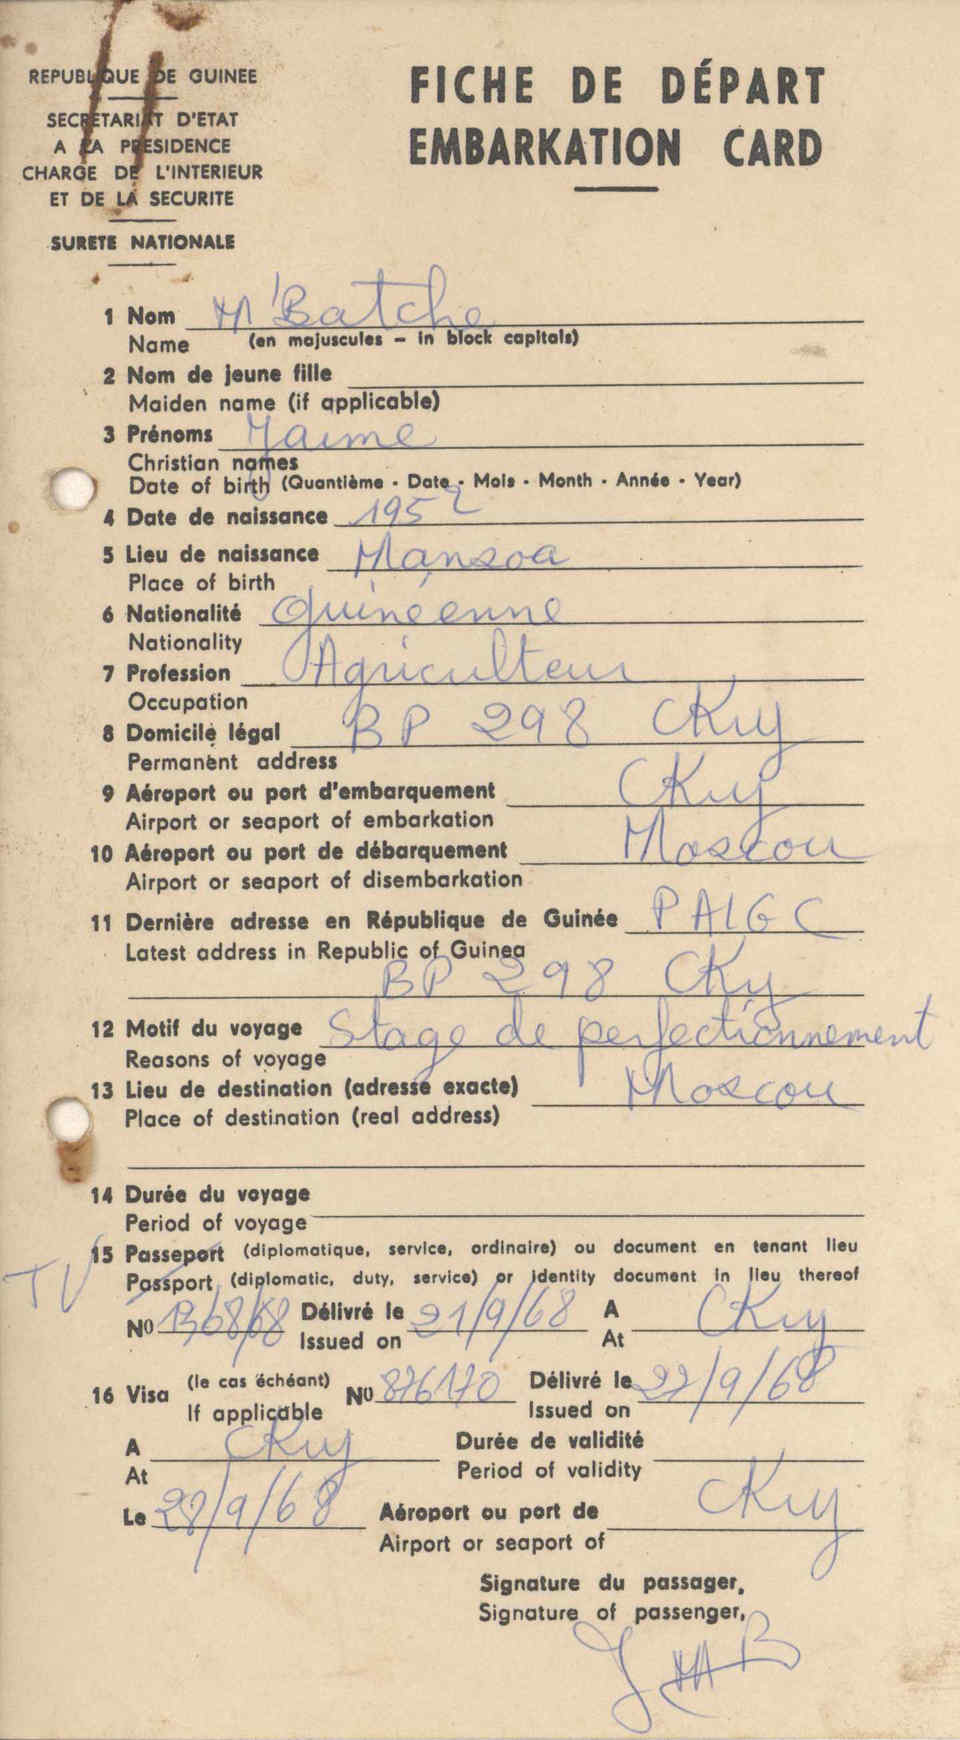 REPUBLIQUE DE GUINEE
SECRETARIAT D'ETAT
A LA PRESIDENCE
CHARGE DE L'INTERIEUR
ET DE LA SECURITE
SURETE NATIONALE
FICHE DE DÉPART
EMBARKATION CARD
1 Nom M'Batche
Name (en majuscules – in block capitals)
2 Nom de jeune fille
Maiden name (if applicable)
3 Prénoms Jaime
Christian names
Date of birth (Quantième - Date - Mois - Month - Année - Year)
4 Date de naissance 1952
5 Lieu de naissance Mansoa
Place of birth
6 Nationalité Guinéenne
Nationality
7 Profession Agriculteur
Occupation
8 Domicile légal BP 298 CKry
Permanent address
9 Aéroport ou port d'embarquement CKry
Airport or seaport of embarkation
10 Aéroport ou port de débarquement Moscou
Airport or seaport of disembarkation
11 Dernière adresse en République de Guinée PAIGC
Latest address in Republic of Guinea
BP 298 CKry
12 Motif du voyage Stage de perfectionnement
Reasons of voyage
13 Lieu de destination (adresse exacte) Moscou
Place of destination (real address)
14 Durée du voyage
Period of voyage
15 Passeport (diplomatique, service, ordinaire) ou document en tenant lieu
TV Passport (diplomatic, duty, service) or identity document in lieu thereof
No Délivré le 21/9/68 A CKry
Issued on At
16 Visa (le cas échéant) No 876170 Délivré le 27/9/68
If applicable Issued on
A CKry Durée de validité
At Period of validity
Le 28/9/68 Aéroport ou port de CKry
Airport or seaport of
Signature du passager,
Signature of passenger,